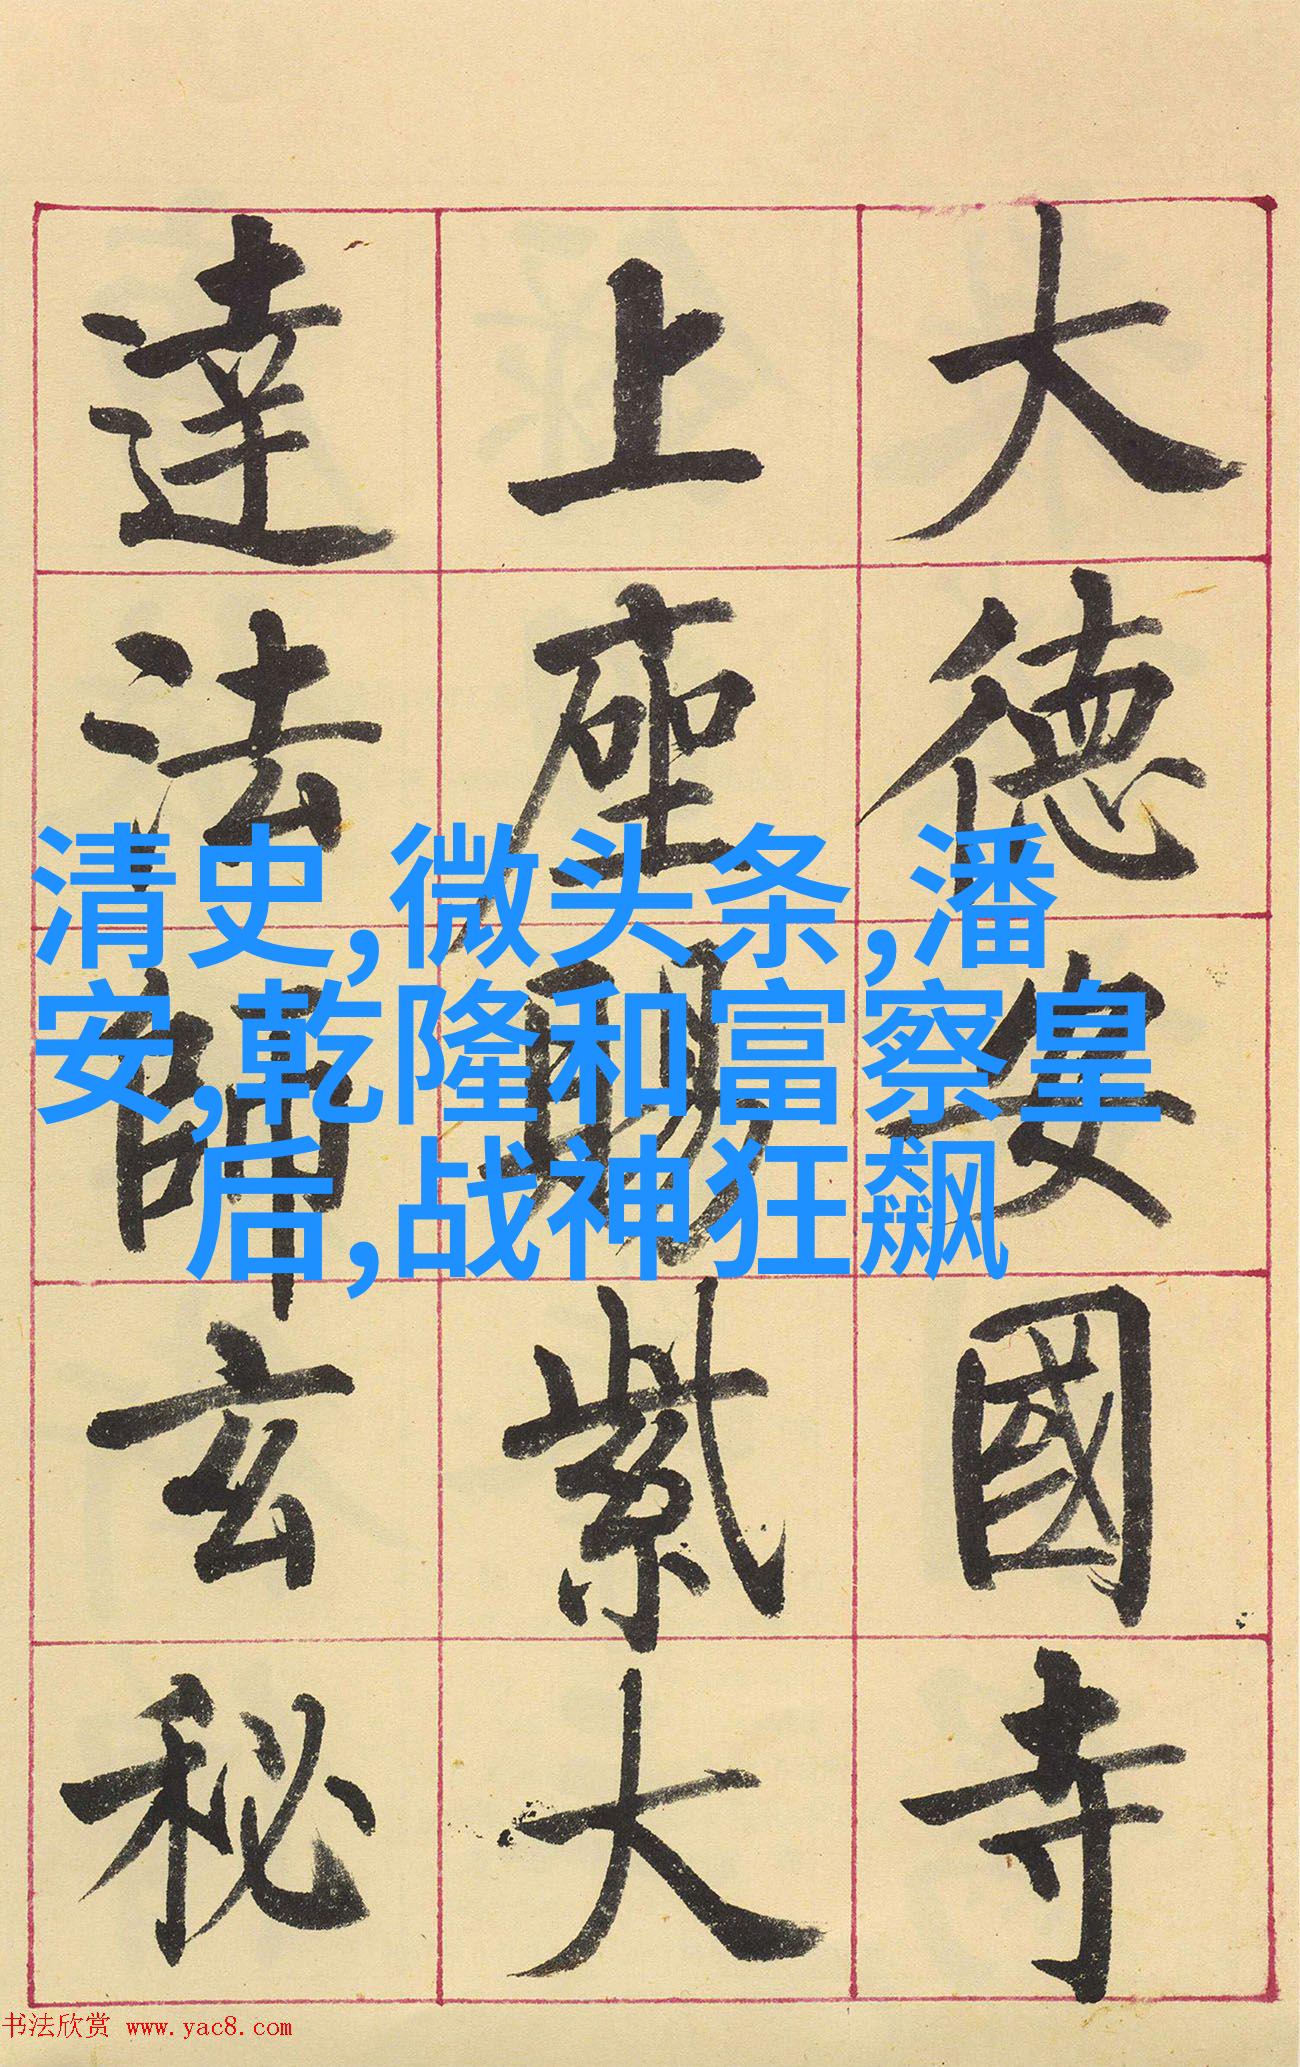 大德安國寺
上座賜紫大
達法師玄秘
清史,微头条,潘
安,乾隆和富察皇
后,战神狂飙
书法欣赏 www.yac8.com